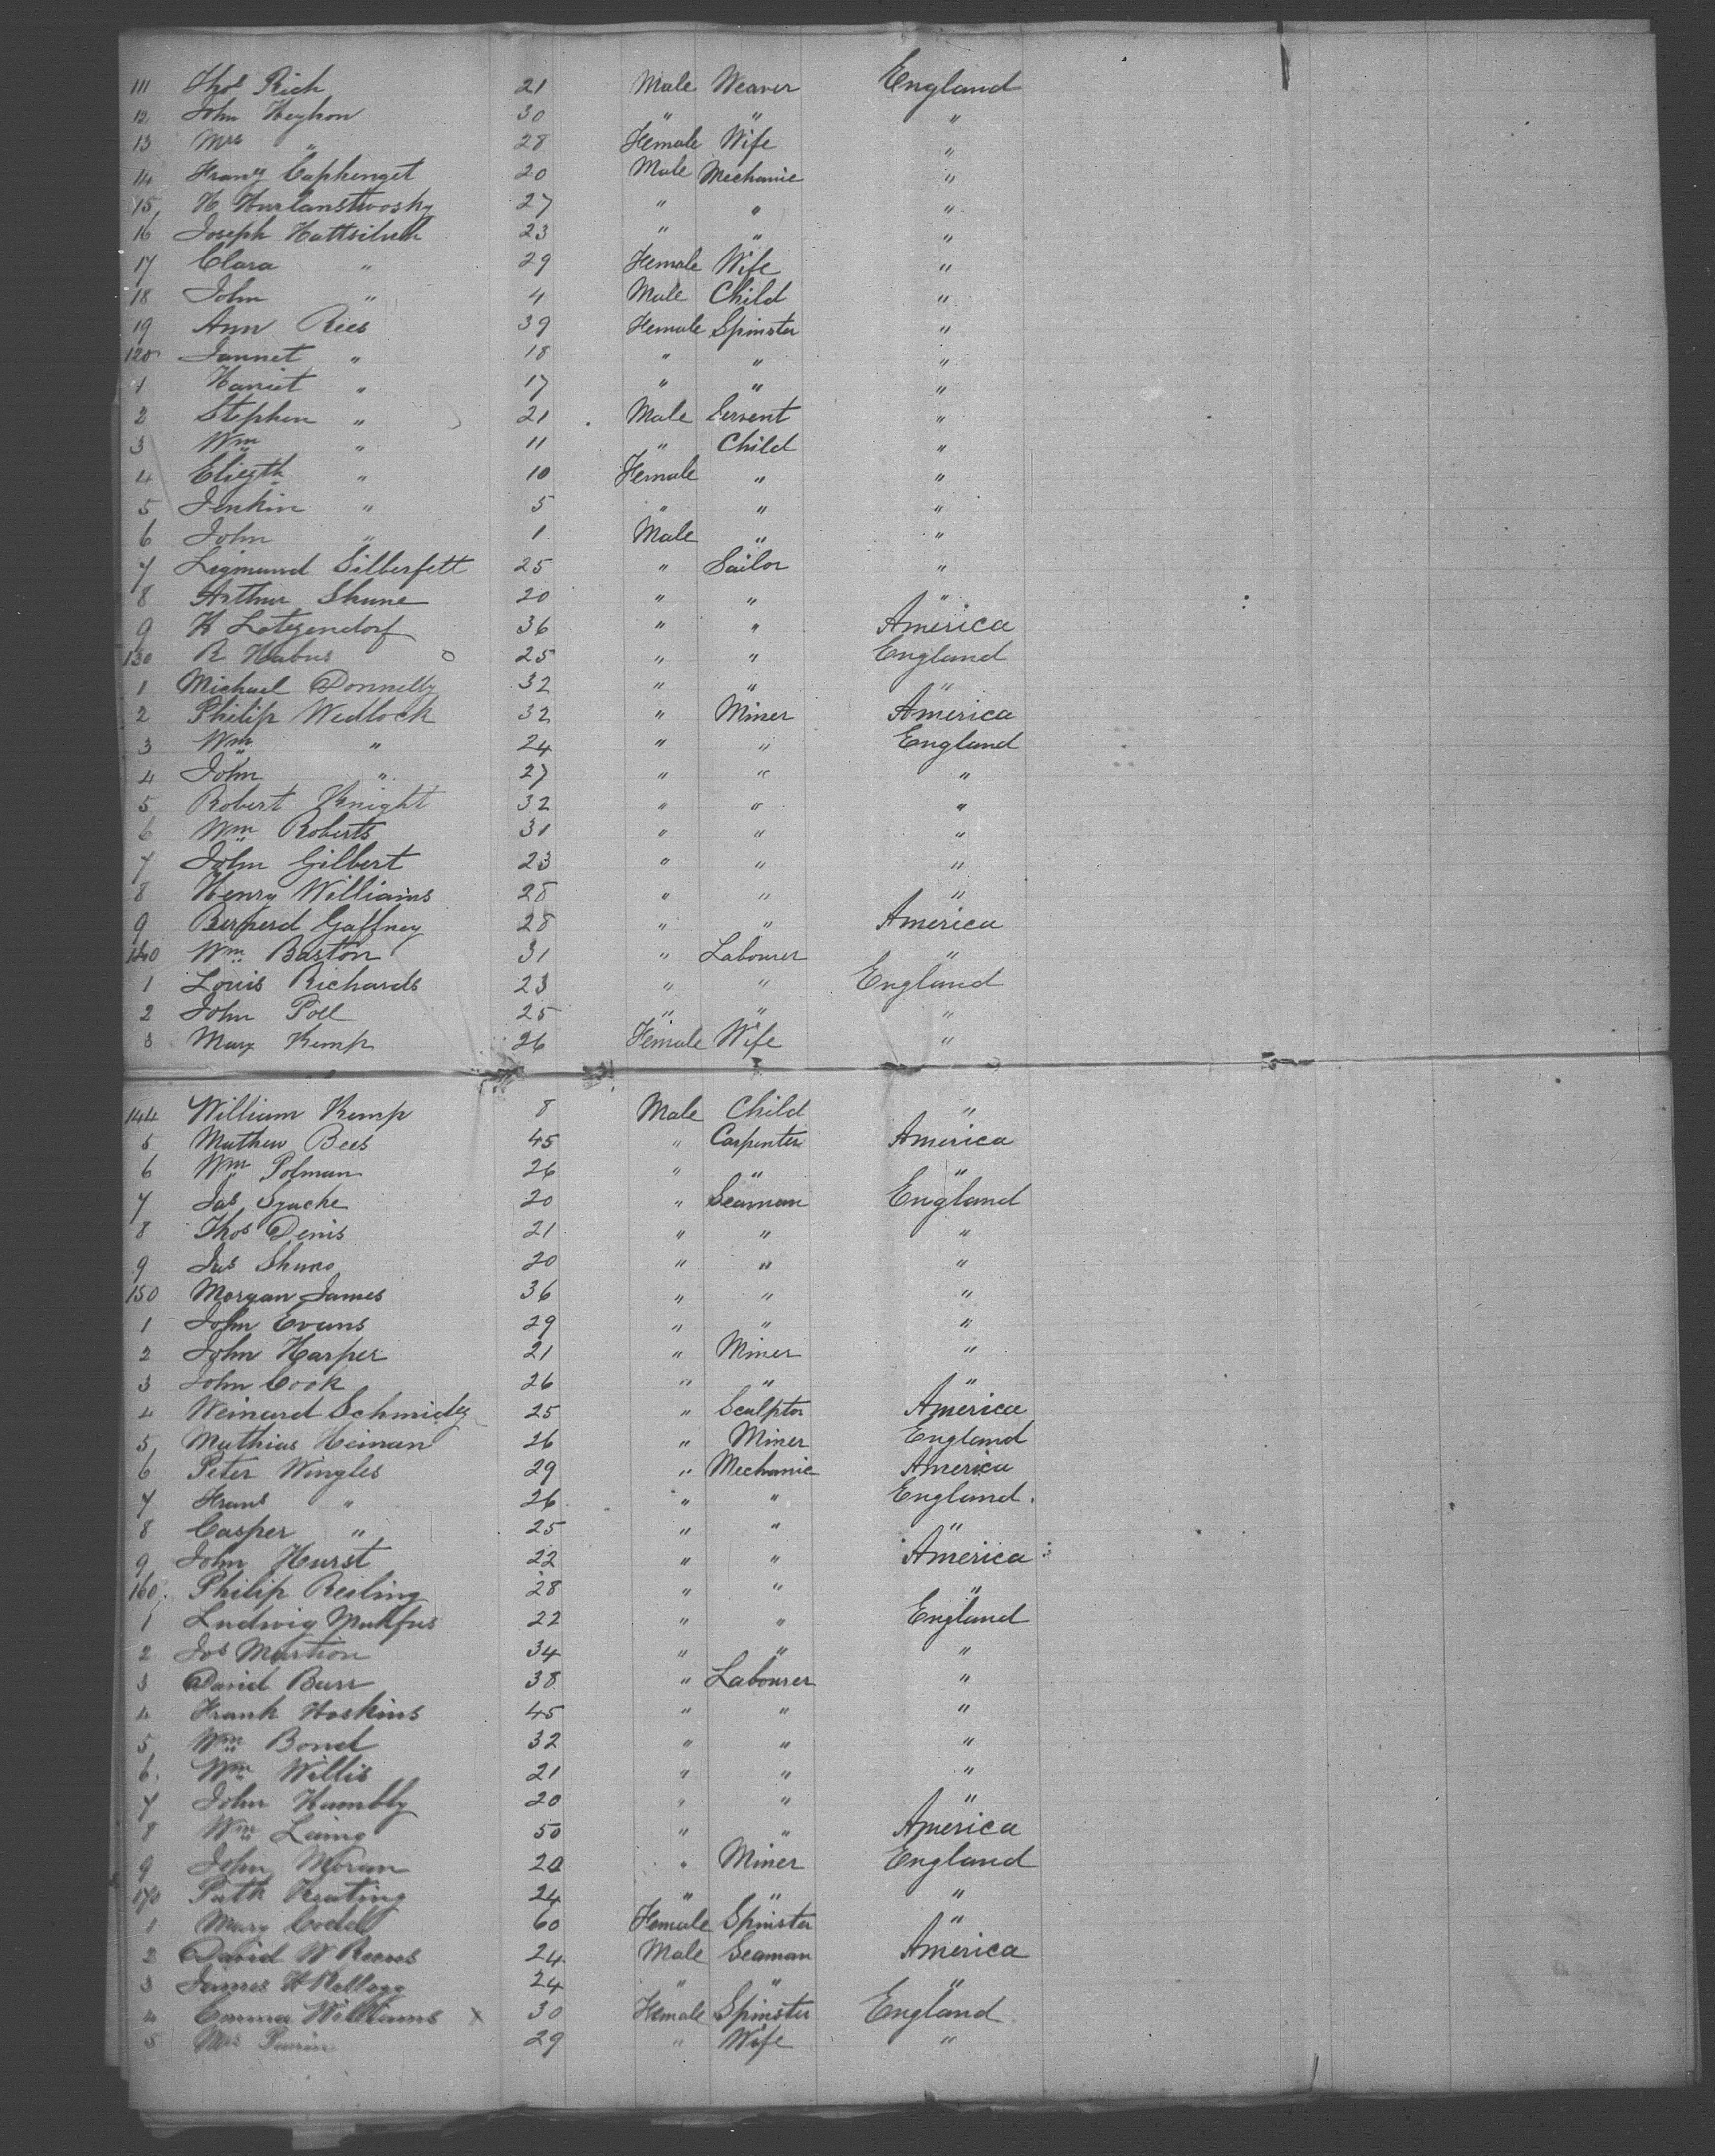 111 Thos Rich 21 Male Weaver England
12 John Heyhon 30 " " "
13 Mrs " 28 Female Wife "
14 Franz Caphenget 20 Male Mechanic "
15 H Hurlanstwosky 27 " " "
16 Joseph 23 " " "
17 Clara " 29 Female Wife "
18 John " 4 Male Child "
19 Ann Rees 39 Female Spinster "
120 Jannet " 18 " " "
1 Hariet " 17 " " "
2 Stephen " 21 Male Servent "
3 Wm " 11 " Child "
4 Elizth " 10 Female " "
5 Jenkin " 5 " " "
6 John " 1 Male " "
7 Sigmund Silberfett 25 " Sailor "
8 Arthur Shune 20 " " "
9 H Lotzendorf 36 " " America
130 R Habus 25 " " England
1 Michael Donnelly 32 " " "
2 Philip Wedlock 32 " Miner America
3 Wm " 24 " " England
4 John " 27 " " "
5 Robert Knight 32 " " "
6 Wm Roberts 31 " " "
7 John Gilbert 23 " " "
8 Henry Williams 28 " " "
9 Berperd Gaffney 28 " " America
140 Wm Baston 31 " Labourer "
1 Louis Richards 23 " " England
2 John Poll 25 " " "
3 Mary Kemp 26 Female Wife "
144 William Kemp 8 Male Child "
5 Mathew Bees 45 " Carpenter America
6 Wm Polman 26 " " "
7 Jas 20 " Seaman England
8 Thos Denis 21 " " "
9 Jas 20 " " "
150 Morgan James 36 " " "
1 John Evans 29 " " "
2 John Harper 21 " Miner "
3 John Cook 26 " " "
4 Weinard Schmidz 25 " Sculptor America
5 Mathias Heinan 26 " Miner England
6 Peter Wingles 29 " Mechanic America
7 Frans " 26 " " England
8 Casper " 25 " " "
9 John Hurst 22 " " America
160 Philip Resling 28 " " "
1 Ludwig 22 " " England
2 Jos Martion 34 " " "
3 David Burr 38 " Labourer "
4 Frank Hoskins 45 " " "
5 Wm Bond 32 " " "
6 Wm Willis 21 " " "
7 John Hambly 20 " " "
8 Wm Laing 50 " " America
9 John Moran 20 " Miner England
170 Patk Keating 24 " " "
1 Mary Codd 60 Female Spinster "
2 David W Reeves 24 Male Seaman America
3 James H Kellogg 24 " " "
4 Emma Williams x 30 Female Spinster England
5 Mrs 29 " Wife "